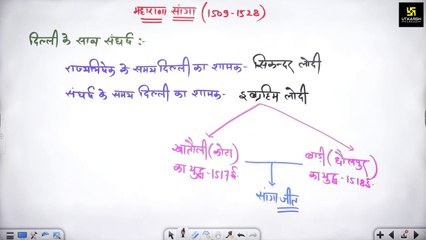 महाराणा सांगा (1509-1528)
UTKARSH
दिल्ली के साथ संघर्ष :-
राज्यभिषेक के समय दिल्ली का शासक- सिकन्दर लोदी
संघर्ष के समय दिल्ली का शासक- इब्राहिम लोदी
खातौली (कोटा)
का युद्ध - 1517ई.
बाड़ी (धौलपुर)
का युद्ध - 1518ई.
सांगा जीत